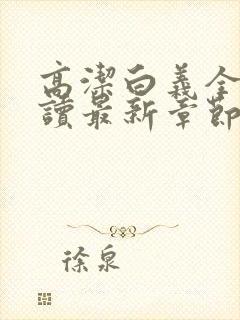 高潔白義全
讀最新章節
徐泉